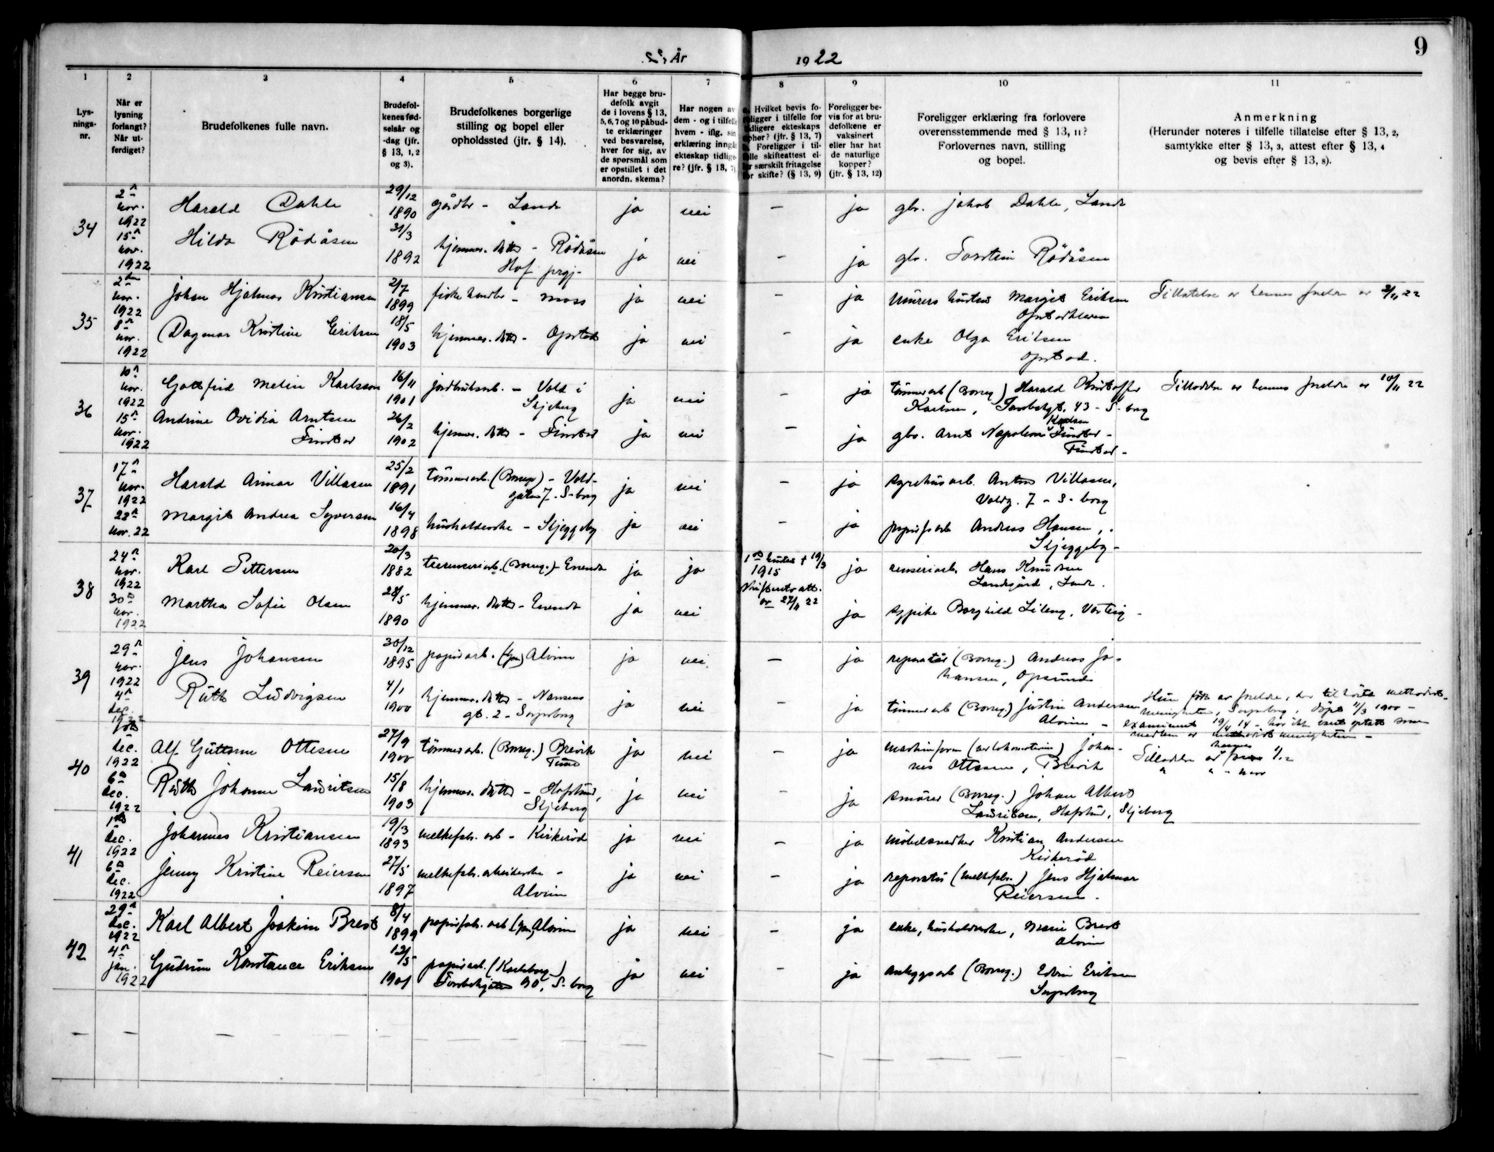 År 1922
9
1 2 3 4 5 6 7 8 9 10 11
Lysningsnr.
Når er lysning forlangt? Når utferdiget?
Brudefolkenes fulle navn.
Brudefolkenes fødselsår og -dag (jfr. § 13, 1, 2 og 3).
Brudefolkenes borgerlige stilling og bopel eller opholdssted (jfr. § 14).
Har begge brudefolk avgit de i lovens § 13, 5, 6, 7 og 10 påbudte erklæringer ved besvarelse, hver for sig, av de spørsmål som er opstillet i det anordn. skema?
Har nogen av dem - og i tilfelle hvem - iflg. sin erklæring inngått ekteskap tidligere? (jfr. § 13, 7)
Hvilket bevis foreligger i tilfelle for tidligere ekteskaps ophør? (§ 13, 7) Foreligger i tilfelle skifteattest eller særskilt fritagelse for skifte? (§ 13, 9)
Foreligger bevis for at brudefolkene er vaksinert eller har hat de naturlige kopper? (jfr. § 13, 12)
Foreligger erklæring fra forlovere overensstemmende med § 13, 11? Forlovernes navn, stilling og bopel.
Anmerkning (Herunder noteres i tilfelle tillatelse efter § 13, 2, samtykke efter § 13, 3, attest efter § 13, 4 og bevis efter § 13, 8).
34 2 nov. 1922 Harald Dahle 29/12 1890 gårdbr - Lande ja nei - ja gbr. Jakob Dahle, Lande
15 nov. 1922 Hilda Rødåsen 21/3 1892 hjemmev. datter - Rødåsen Hof prgj. ja nei - ja gbr. Torstein Rødåsen
35 2 nov. 1922 Johan Hjalmar Kristiansen 2/7 1899 fiskehandler - Moss ja nei - ja murers hustru Margit Eriksen
8 nov. 1922 Dagmar Kristine Eriksen 18/5 1903 hjemmev. datter - Opstad ja nei - ja enke Olga Eriksen Opstad.
Tillatelse av hennes foreldre av 2/11 22
36 10 nov. 1922 Gottfrid Melin Karlsson 16/11 1901 jordbruksarb. - Vold i Skjeberg ja nei - ja tømmerarb. (Borreg.) Harald Kristoffer Karlsen, 43 - S-borg
15 nov. 1922 Andrine Ovidia Arntsen Finstad 26/2 1902 hjemmev. datter - Finstad ja nei - ja gbr. Arnt Napoleon Finstad - Finstad -
Tilladelse av hennes foreldre av 10/11 22
37 17 nov. 1922 Harald Arinar Villasen 25/2 1891 tømmerarb. (Borreg.) - Voldgaten 7. S-borg ja nei - ja syrehusarb. Anton Villasen, Voldg. 7 - S-borg
22 nov. 22 Margit Andrea Syversen 16/4 1898 husholderske - Skjeggeby ja nei - ja papirfs.arb Andreas Hansen, Skjeggeby -
38 24 nov. 1922 Karl Pettersen 20/3 1882 (Borreg.) Enende ja ja 1ste hustru † 19/3 1915 Skifteretts att. av 27/11 22 ja Hans Knudsen Landsgård, Lande.
30 nov. 1922 Martha Sofie Olsen 28/5 1890 hjemmev. datter - Enende ja nei ja sypike Borghild Lileng, Varteig -
39 29 nov. 1922 Jens Johansen 30/12 1895 papirarb. Alvim ja nei - ja reparatør (Borreg.) Andreas Johansen, Opsund
4 dec. 1922 Ruth Ludvigsen 4/1 1900 hjemmev. datter - Nansens gt. 2 - Sarpsborg ja nei - ja tømmerarb (Borreg.) Justin Andersen Alvim -
Hun født av foreldre, der tilhørte methodistmenigheten, Sarpsborg, døpt 4/3 1900 - examineret 19/4 14 - har ikke været optatt som medlem av methodistmenigheten -
40 dec. 1922 Alf Guttorm Ottesen 27/9 1900 tømmerarb. (Borreg.) Brevik Tune ja nei - ja maskinform (av lokomotivin) Johannes Ottesen, Brevik
6 dec. 1922 Ruth Johanne Lauritsen 15/8 1903 hjemmev. datter - Hafslund, Skjeberg ja nei ja smører (Borreg.) Johan Albert Lauritsen, Hafslund, Skjeberg
Tilladelse av hennes 1/12
41 1 dec. 1922 Johannes Kristiansen 19/3 1893 melkefabr. arb - Kirkerød ja nei - ja møbelsnedker Kristian Andersen Kirkerød
6 dec. 1922 Jenny Kristine Reiersen 27/5 1897 melkefabr. arbeiderske - Alvim ja nei - ja reparatør (melkefabr.) Jens Hjalmar Reiersen.
42 29 dec. 1922 Karl Albert Joakim Brest 8/4 1899 papirfab. arb Alvim ja nei - ja enke, husholderske, Marie Brest Alvim
4 jan. 1922 Gudrun Konstance Eriksen 12/5 1901 papirarb. S-borg ja nei - ja anleggsarb (Borreg.) Edvin Eriksen Sarpsborg